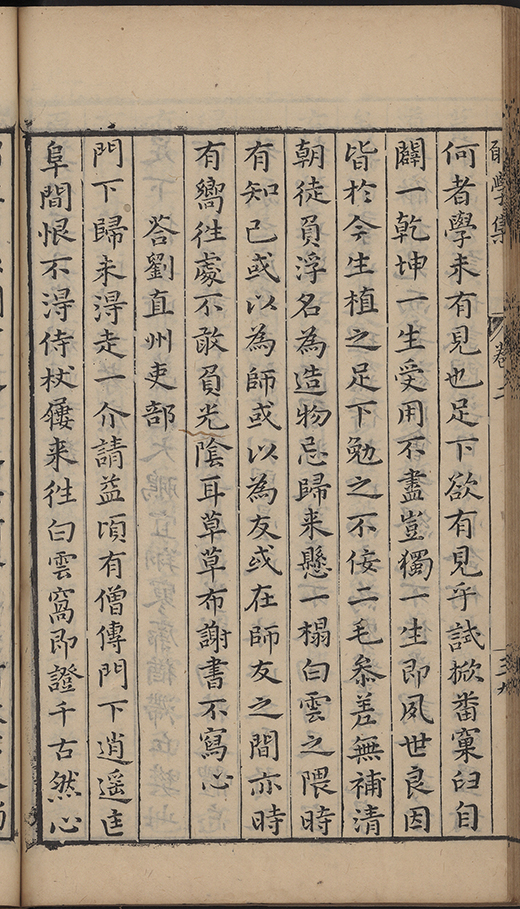 學集 卷二
何者學未有見也足下欲有見乎試掀番窠臼自
闢一乾坤一生受用不盡豈獨一生即夙世良因
皆於今生植之足下勉之不佞二毛叅差無補清
朝徒負浮名為造物忌歸来懸一榻白雲之隈時
有知己或以為師或以為友或在師友之間亦時
有嚮徃處不敢負光陰耳草草布謝書不寫心
荅劉直州吏部
門下歸未淂走一介請益頃有僧傳門下逍遥匡
阜間恨不淂侍杖屨来徃白雲窩即證千古然心